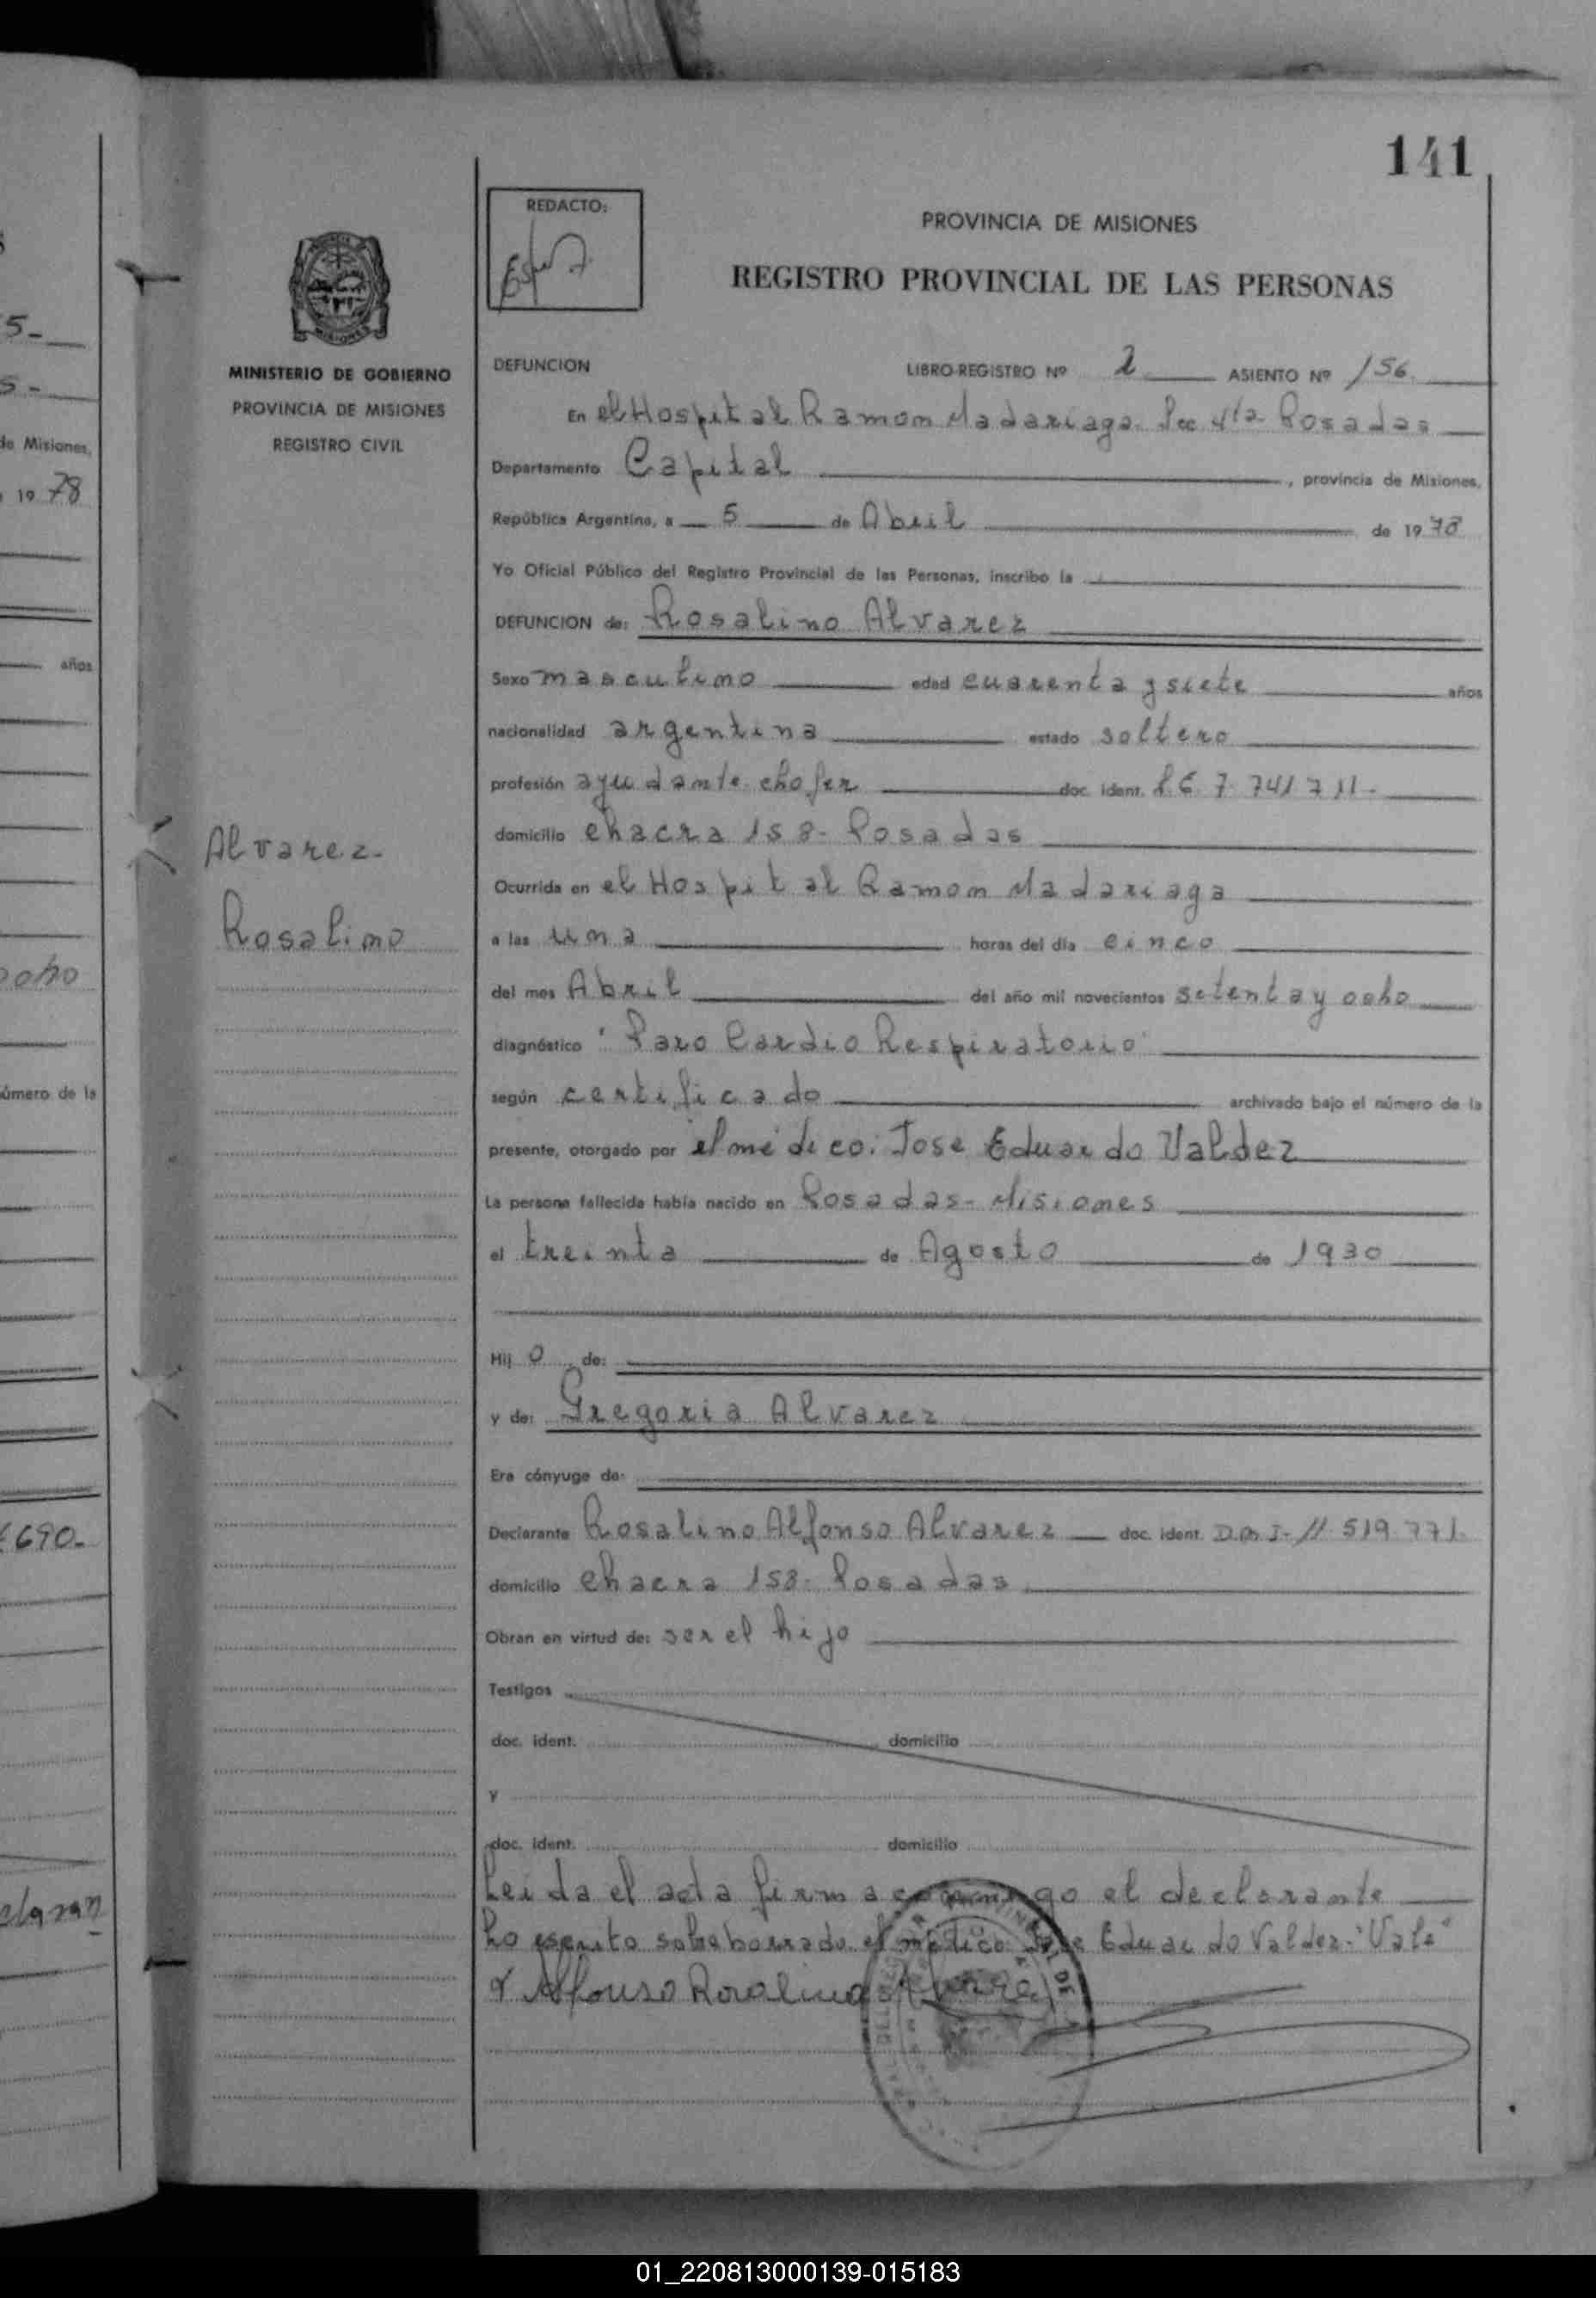 141
REDACTO:
PROVINCIA DE MISIONES
REGISTRO PROVINCIAL DE LAS PERSONAS
MINISTERIO DE GOBIERNO
PROVINCIA DE MISIONES
REGISTRO CIVIL
DEFUNCION LIBRO-REGISTRO Nº 2 ASIENTO Nº 156
En el Hospital Ramon Madariaga Sec 4ta Posadas
Departamento Capital, provincia de Misiones,
República Argentina, a 5 de Abril de 1978
Yo Oficial Público del Registro Provincial de las Personas, inscribo la
DEFUNCION de: Rosalino Alvarez
Sexo masculino edad cuarenta y siete años
nacionalidad argentina estado soltero
profesión ayudante chofer doc. ident. 7.741711-
domicilio chacra 158- Posadas
Alvarez-
Rosalino
Ocurrida en el Hospital Ramon Madariaga
a las una horas del día cinco
del mes Abril del año mil novecientos setenta y ocho
diagnóstico "Paro Cardio Respiratorio"
según certificado archivado bajo el número de la
presente, otorgado por el médico: Jose Eduardo Valdez
La persona fallecida había nacido en Posadas- Misiones
el treinta de Agosto de 1930
Hij o de:
y de: Gregoria Alvarez
Era cónyuge de:
Declarante Rosalino Alfonso Alvarez doc. ident. D.N.I- 11.519.771.
domicilio chacra 158- Posadas
Obran en virtud de: ser el hijo
Testigos
doc. ident. domicilio
y
doc. ident. domicilio
Leida el acta firma conmigo el declarante
Lo escrito sobreborrado el médico: Jose Eduardo Valdez-"Vale"
Alfonso Rosalino Alvarez
5-
5-
de Misiones,
19 78
años
ocho
número de la
690-
claran
01_220813000139-015183